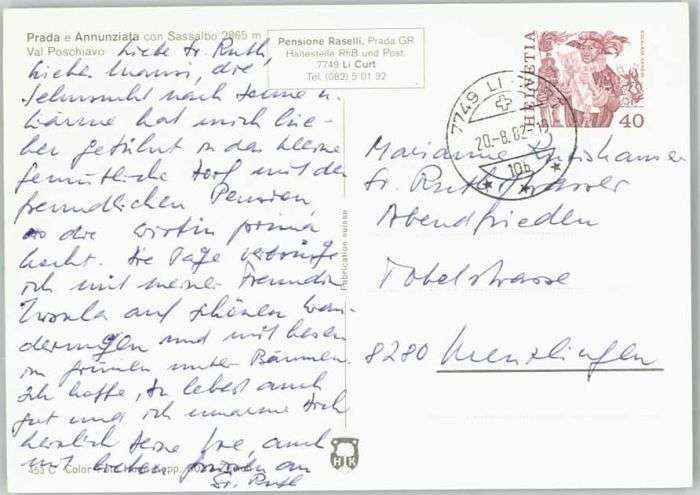 Prada e Annunziata con Sassalbo 2865 m
Val Poschiavo
Pensione Raselli, Prada GR
Haltestelle RhB und Post
7749 Li Curt
Tel. (082) 5 01 92
Liebe Sr. Ruth,
liebe Mausi, die
Sehnsucht nach Sonne u.
Wärme hat mich hie-
her geführt in das kleine
gemütliche Dorf mit der
freundlichen Pension,
wo die Wirtin prima
kocht. Die Tage verbringe
ich mit meiner Freundin
Ursula auf schönen Wan-
derungen und mit Lesen
im grünen unter Bäumen.
Ich hoffe, Du lebest auch
gut und ich umarme Dich
herzlich Deine auch
mit lieben Grüssen an
Sr. Ruth
7749 LI
20.-8.82
10b
HELVETIA
40
Marianne
Sr. Ruth
Abendfrieden
Tobelstrasse
8280 Kreuzlingen
Fabrication suisse
HK
453 C Color